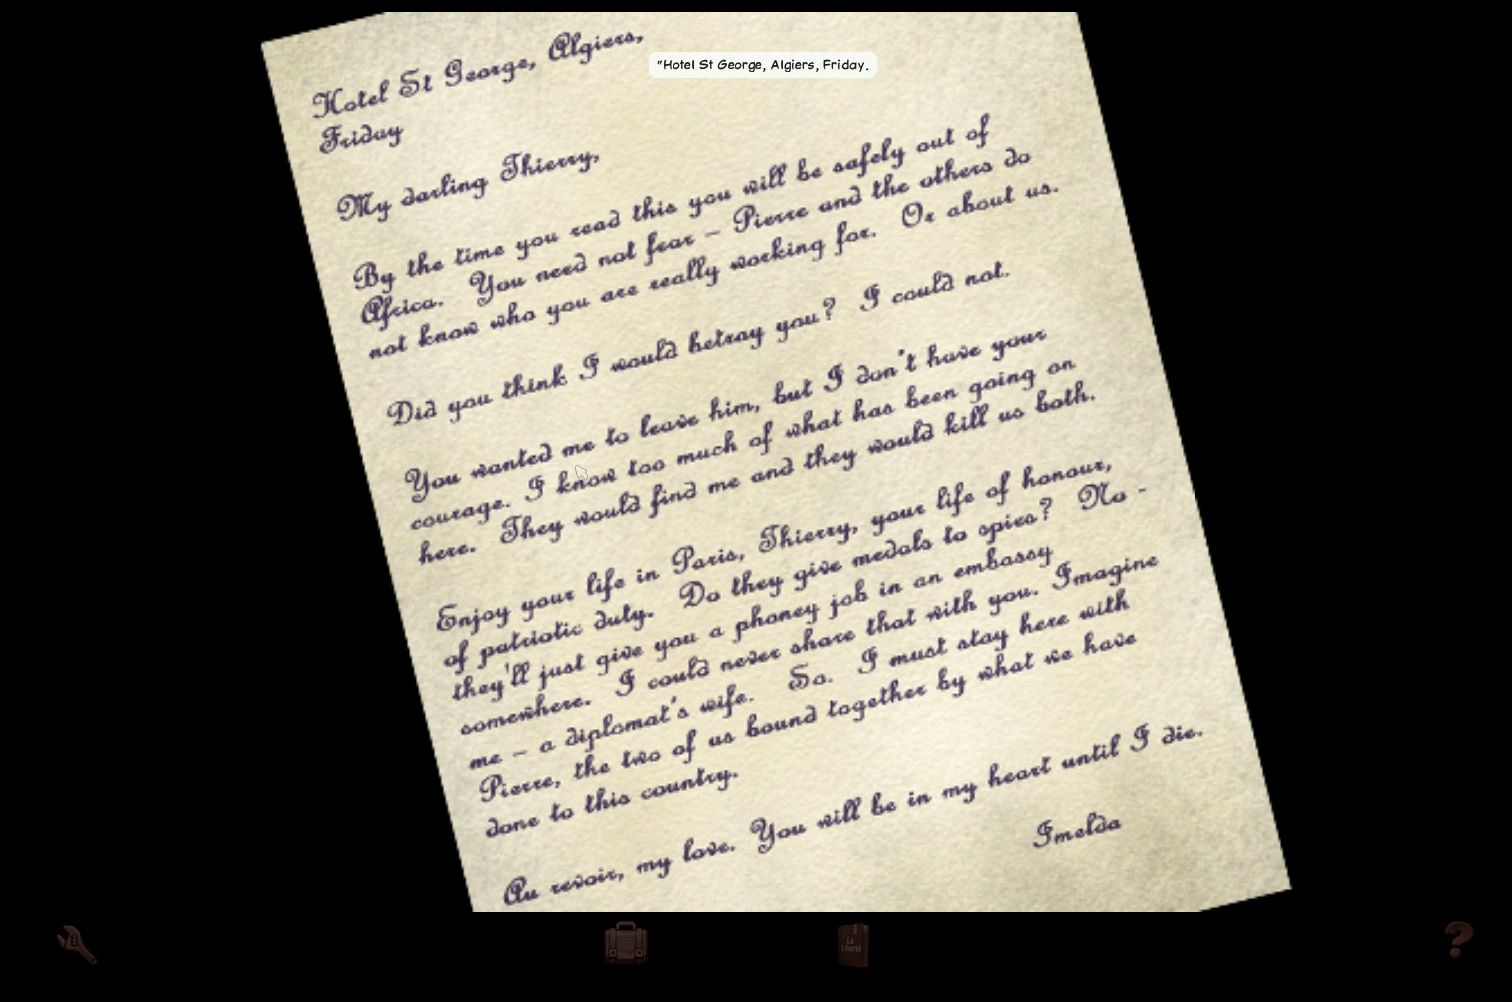 Hotel St George, Algiers,
"Hotel St George, Algiers, Friday.
Friday
My darling Thierry,
By the time you read this you will be safely out of
Africa. You need not fear – Pierre and the others do
not know who you are really working for. Or about us.
Did you think I would betray you? I could not.
You wanted me to leave him, but I don't have your
courage. I know too much of what has been going on
here. They would find me and they would kill us both.
Enjoy your life in Paris, Thierry, your life of honour,
of patriotic duty. Do they give medals to spies? No -
they'll just give you a phoney job in an embassy
somewhere. I could never share that with you. Imagine
me – a diplomat's wife. So. I must stay here with
Pierre, the two of us bound together by what we have
done to this country.
Au revoir, my love. You will be in my heart until I die.
Imelda
La
Liberté
?